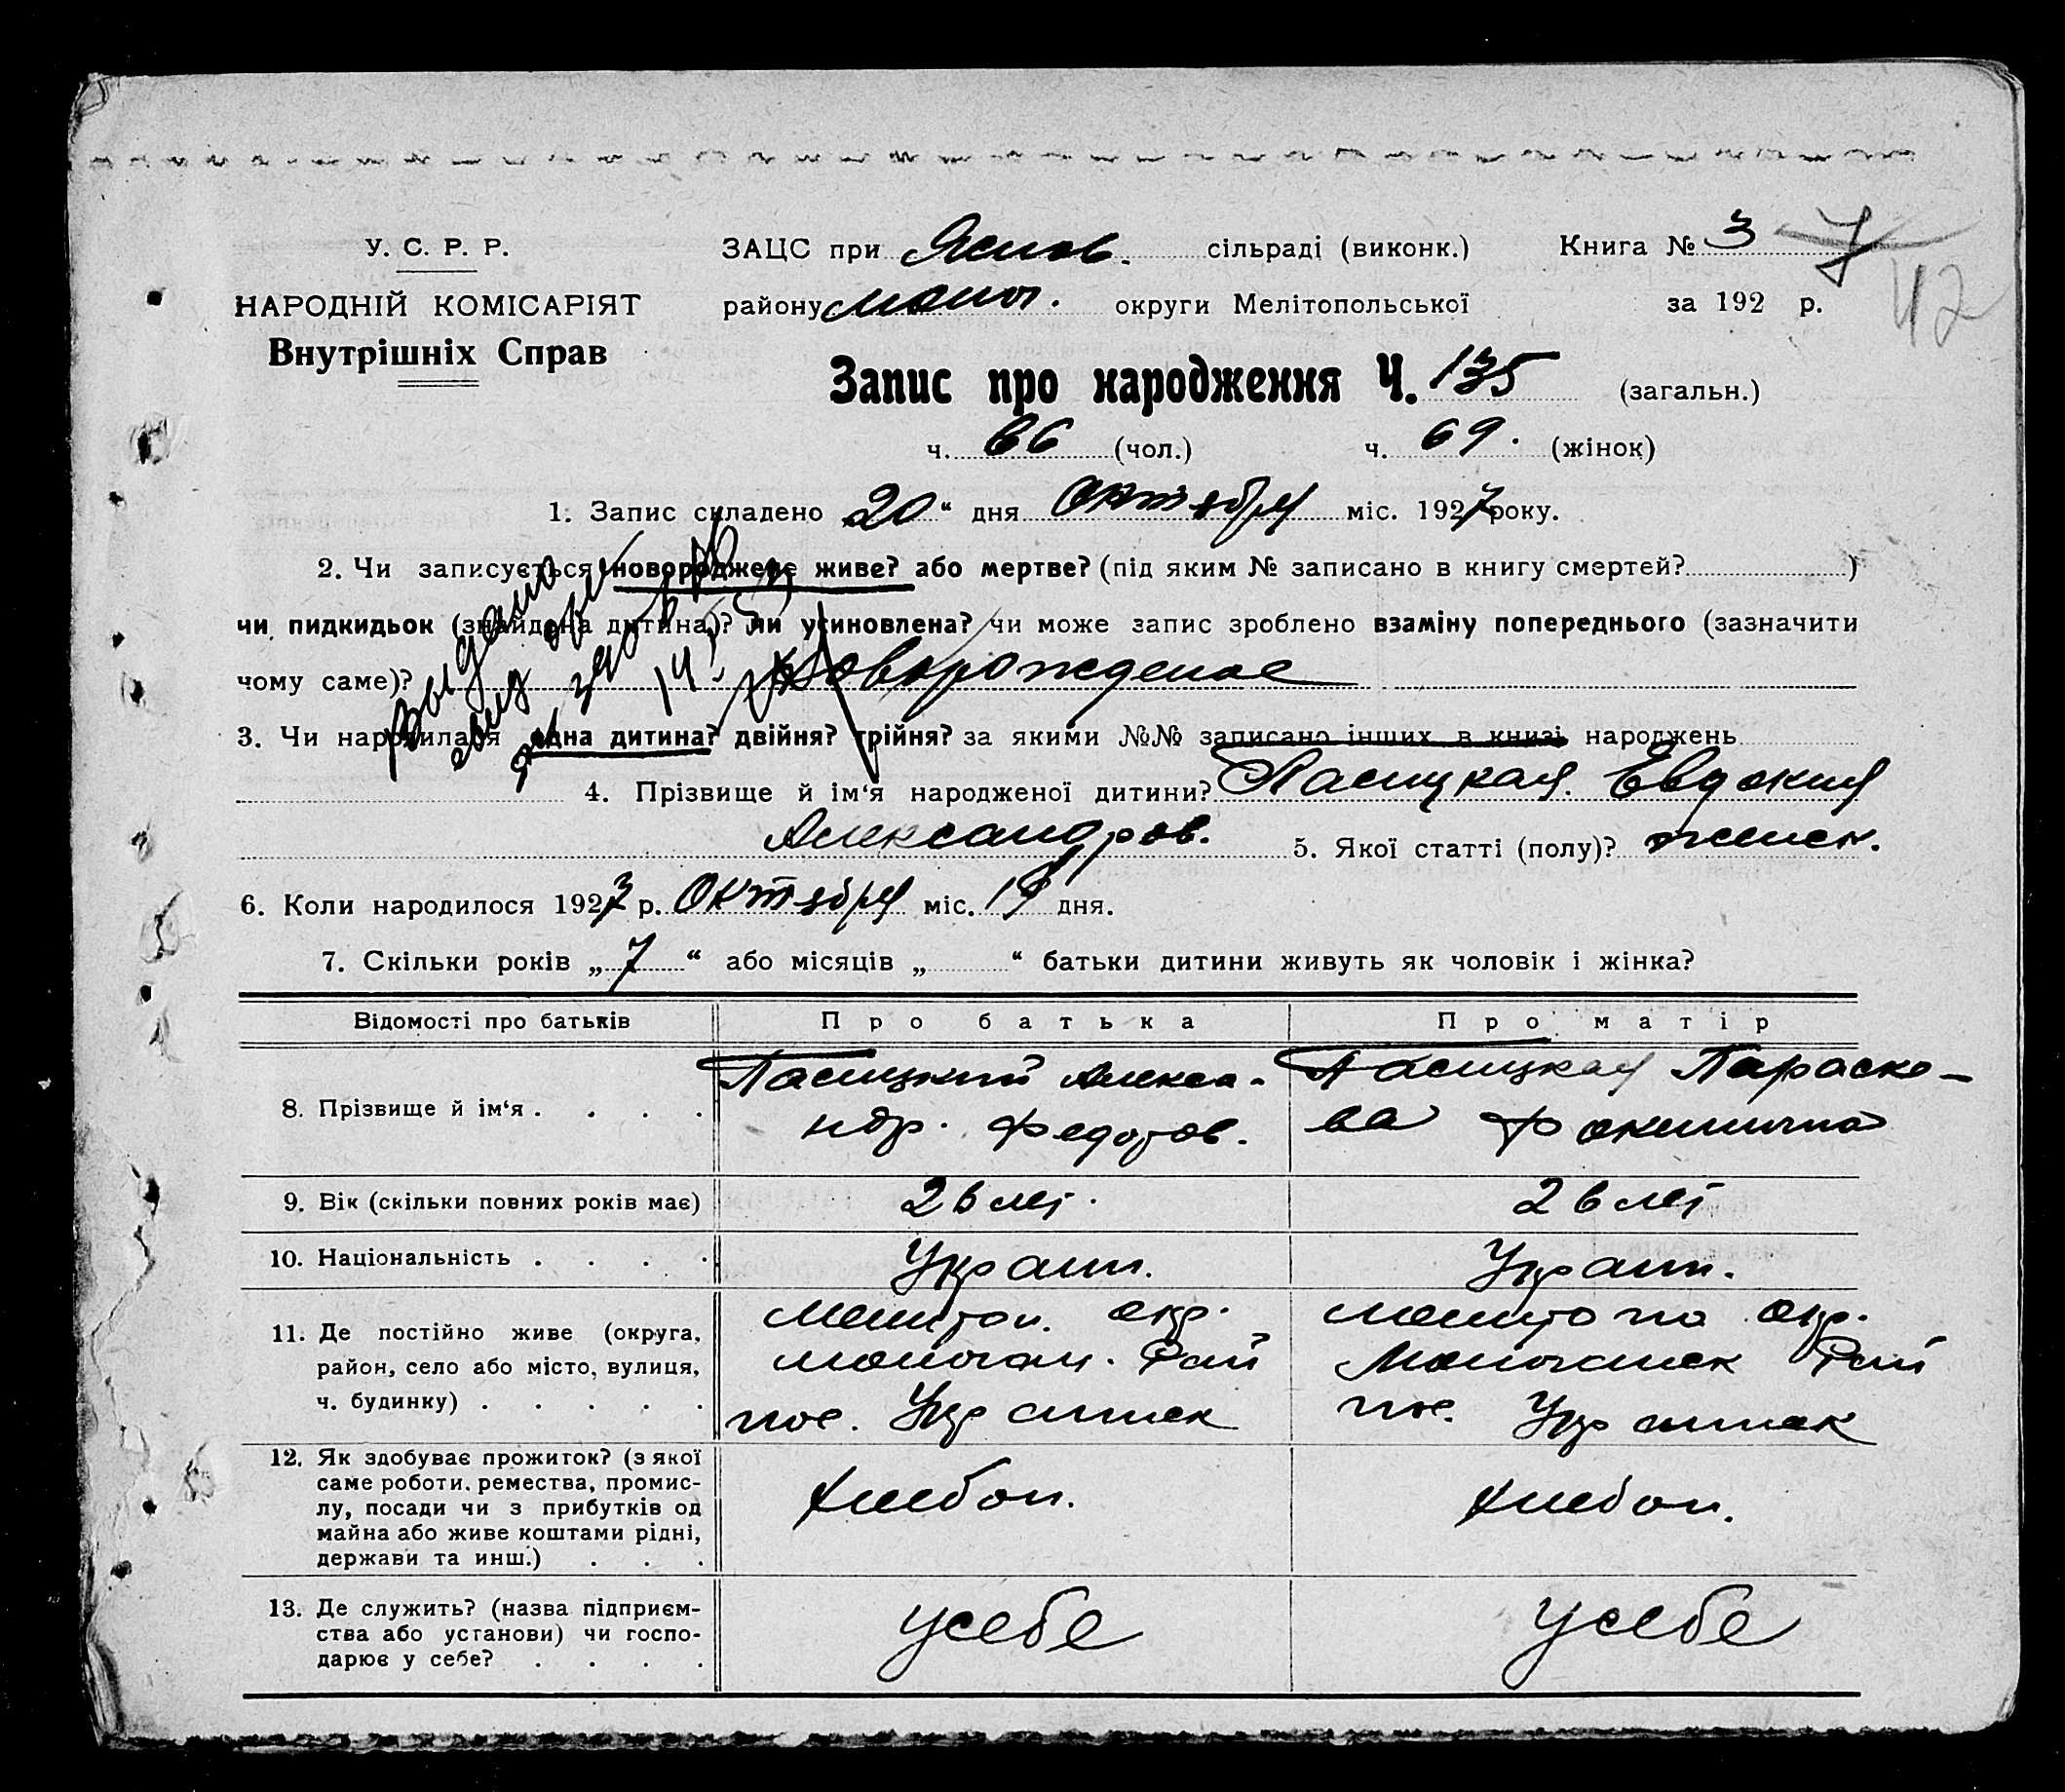 У. С. Р. Р.
НАРОДНІЙ КОМІСАРІЯТ
Внутрішніх Справ
ЗАЦС при Яснов. сільраді (виконк.) Книга № 3 7
району Молоч. округи Мелітопольської за 192 р. 42
Запис про народження Ч. 135 (загальн.)
ч. 66 (чол.) ч. 69. (жінок)
1. Запис складено 20 " дня Октября міс. 1927 року.
2. Чи записується новороджене живе? або мертве? (під яким № записано в книгу смертей? )
чи пидкидьок (знайдена дитина)? чи усиновлена? чи може запис зроблено взаміну попереднього (зазначити
чому саме)? Новорожденое
Выдано
3. Чи народилася одна дитина? двійня? трійня? за якими №№ записано інших в книзі народжень
4. Прізвище й ім'я народженої дитини? Пасицкая Евдокия
Александров. 5. Якої статті (полу)? женск.
6. Коли народилося 1927 р. Октября міс. 19 дня.
7. Скільки років „ 7 “ або місяців „ “ батьки дитини живуть як чоловік і жінка?
Відомості про батьків Про батька Про матір
8. Прізвище й ім'я . . . . Пасицкий Алекса- Пасицкая Параско-
ндр. Федотов. ва Фокинична
9. Вік (скільки повних років має) 26 лет. 26 лет
10. Національність . . . . Украин. Украин.
11. Де постійно живе (округа, Мелитоп. окр. Мелитопо окр.
район, село або місто, вулиця, Молочан. Рай Молочанск Рай
ч. будинку) . . . . . пос. Украинск пос. Украинск
12. Як здобуває прожиток? (з якої
саме роботи, ремества, промис-
лу, посади чи з прибутків од Хлебоп. Хлебоп.
майна або живе коштами рідні,
держави та инш.) . . .
13. Де служить? (назва підприєм-
ства або установи) чи госпо- усебе усебе
дарює у себе? . . . .